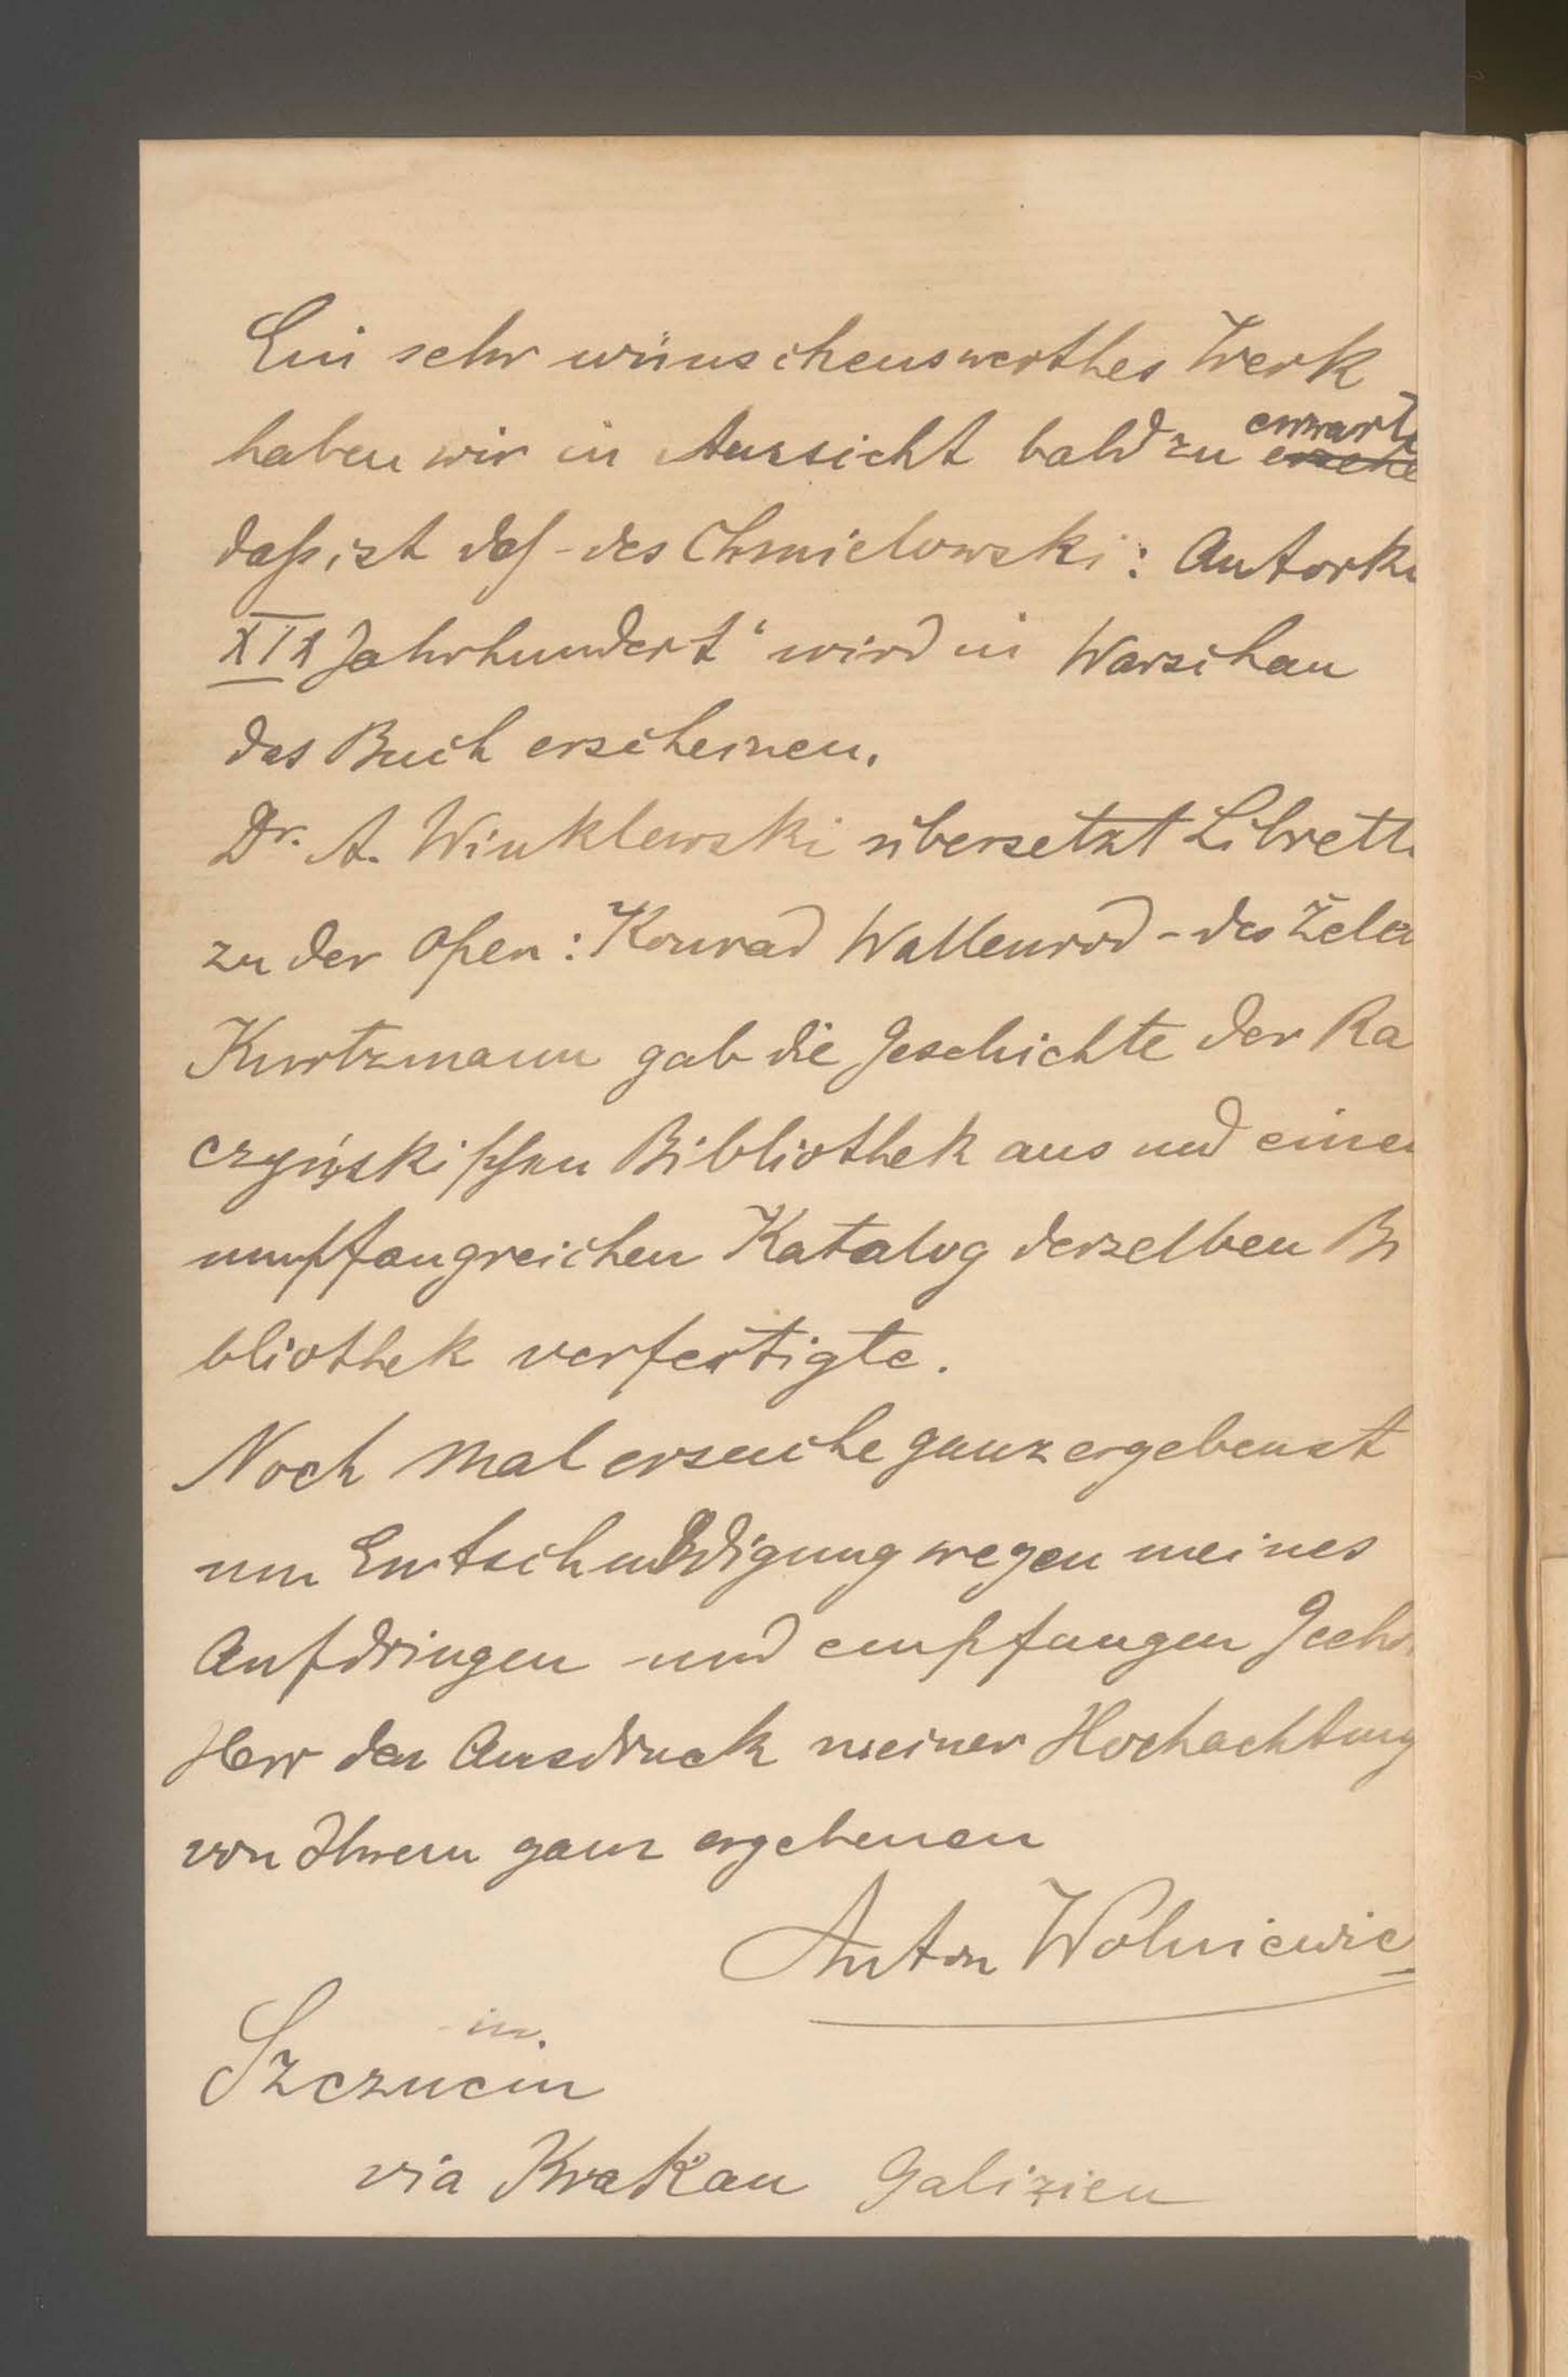 Ein sehr wünschenswerthes Werk
haben wir in Aussicht bald zu erwart
daß ist das - des Chmielowski: Autork
XIX Jahrhundert“ wird in Warschau
das Buch erscheinen.
Dr. A. Winklewski übersetzt Librett
zu der Open: Konrad Wallenrod - des Żele
Kurtzmann gab die Geschichte der Ra
czyńskischen Bibliothek aus und eine
umpfangreichen Katalog derselben Bi
bliothek verfertigte.
Noch mal ersuche ganz ergebenst
um Entschuldigung wegen meines
Aufdringen und empfangen Geeh
Herr den Ausdruck meiner Hochachtung
von Ihrem ganz ergebenen
Anton Wolniewic
in
Szczucin
via Krakau Galizien